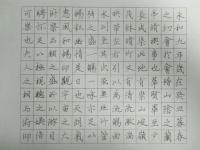 永和九年歲在癸丑暮春
之初會于會稽山陰之蘭亭
脩禊事也群賢畢至少長
咸集此地有崇山峻領茂
林脩竹又有清流激湍映
帶左右引以為流觴曲水
列坐其次雖無絲竹管弦
之盛一觴一詠亦足以暢
敘幽情是日也天朗氣清
惠風和暢仰觀宇宙之大
俯察品類之盛所以遊目
騁懷足以極視聽之娛信
可樂也夫人之相與俯仰